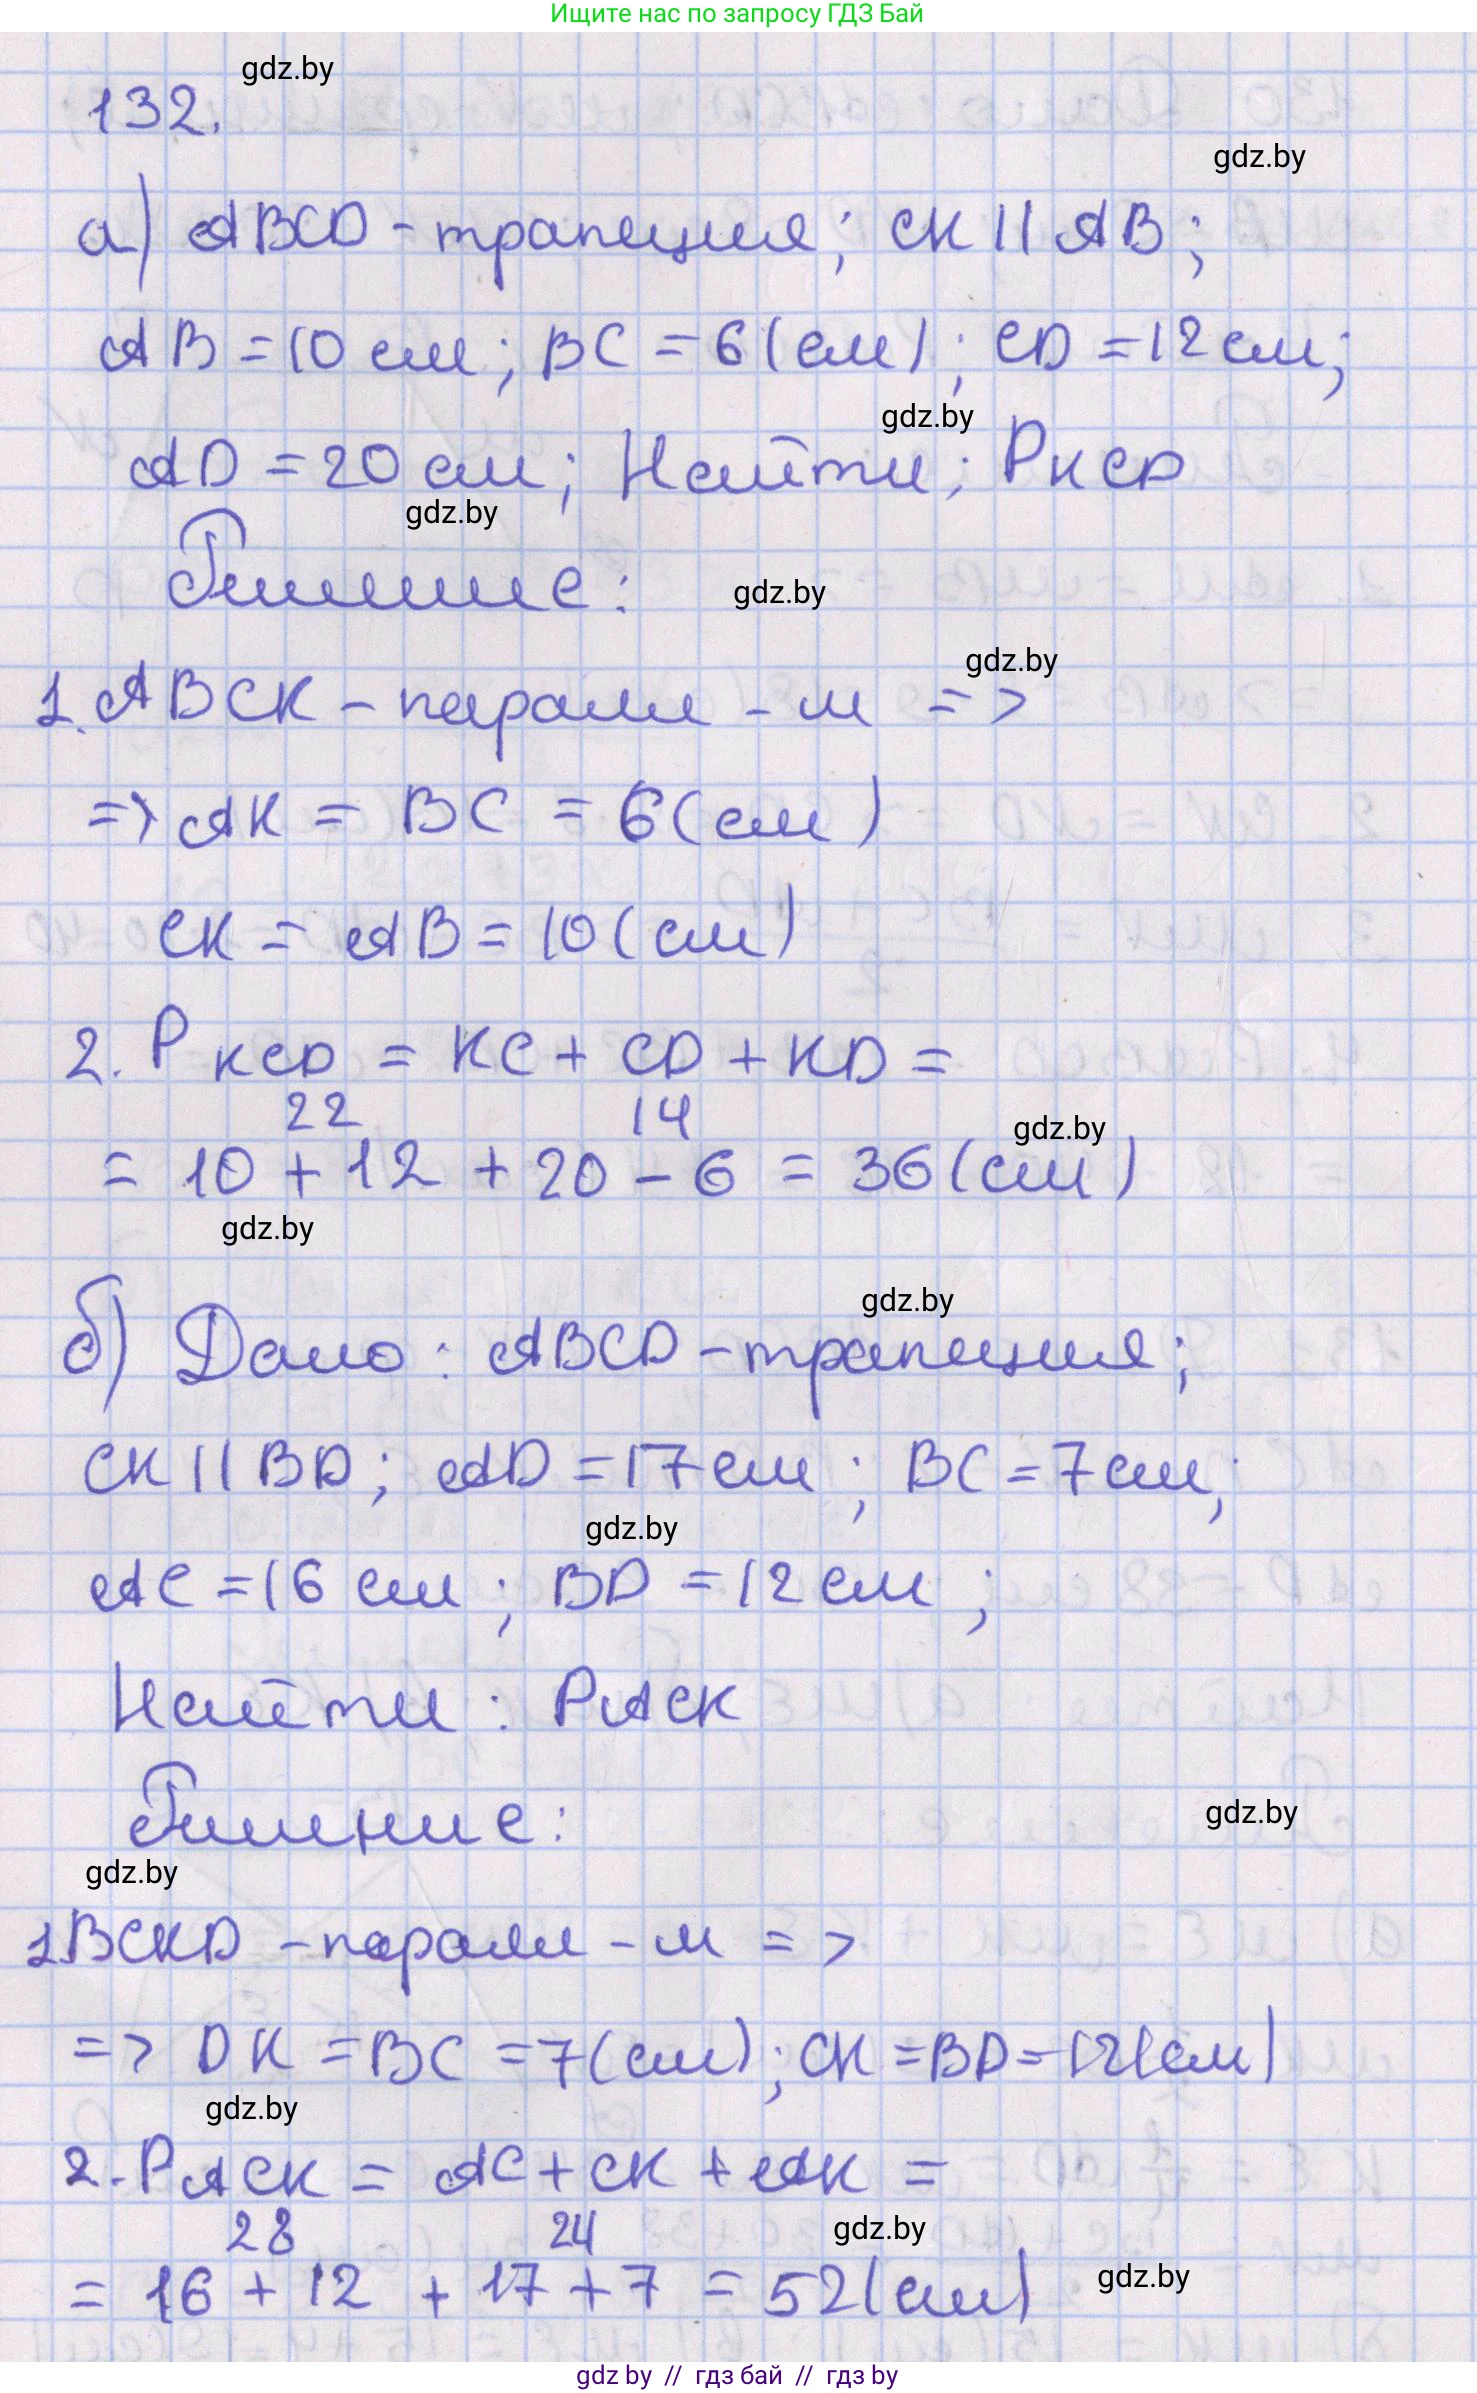 Ищите нас по запросу ГДЗ Бай
gdz.by
132.
gdz.by
а) ABCD - трапеция; CK || AB;
AB = 10 см; BC = 6 (см); CD = 12 см;
gdz.by
AD = 20 см; Найти; PKCD
gdz.by
Решение:
gdz.by
gdz.by
1. ABCK - паралл - м =>
=> AK = BC = 6 (см)
CK = AB = 10 (см)
2. PKCD = KC + CD + KD =
22 14
gdz.by
= 10 + 12 + 20 - 6 = 36 (см)
gdz.by
gdz.by
б) Дано: ABCD - трапеция;
CK || BD; AD = 17 см; BC = 7 см;
gdz.by
AC = 16 см; BD = 12 см;
Найти: PACK
gdz.by
Решние:
gdz.by
1 BCKD - паралл - м =>
=> DK = BC = 7 (см); CK = BD = 12 (см)
gdz.by
2. PACK = AC + CK + AK =
28 24
gdz.by
gdz.by
= 16 + 12 + 17 + 7 = 52 (см)
gdz by // гдз бай // гдз by